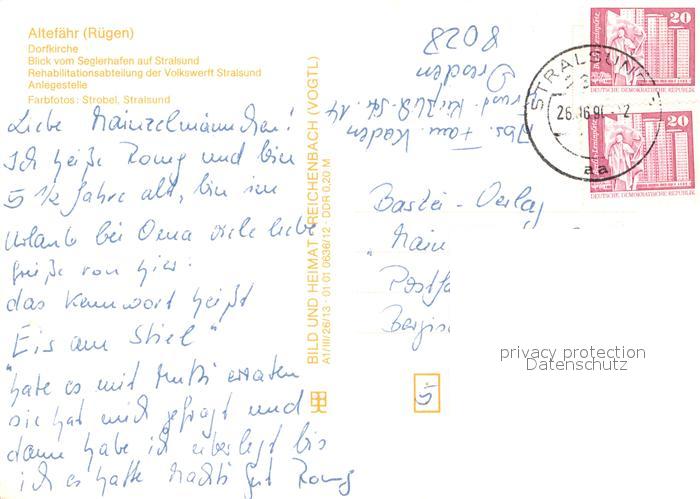 Altefähr (Rügen)
Dorfkirche
Blick vom Seglerhafen auf Stralsund
Rehabilitationsabteilung der Volkswerft Stralsund
Anlegestelle
Farbfotos: Strobel, Stralsund
Liebe Mainzelmännchen!
Ich heiße Romy und bin
5 1/2 Jahre alt, bin im
Urlaub bei Oma viele liebe
grüße von hier.
das Kennwort heißt
"Eis am Stiel"
habe es mit Mutti erraten
sie hat mich gefragt und
dann habe ich überlegt bis
ich es hatte Machts gut Romy
BILD UND HEIMAT REICHENBACH (VOGTL)
A1/III/26/13 · 01 01 0636/12 · DDR 0,20 M
Abs. Fam. Kaden
14
Dresden
8028
Bastei-Verlag
"Main
Postfa
Bergis
5
STRALSUND
aa
20
DEUTSCHE DEMOKRATISCHE REPUBLIK
20
DEUTSCHE DEMOKRATISCHE REPUBLIK
privacy protection
Datenschutz